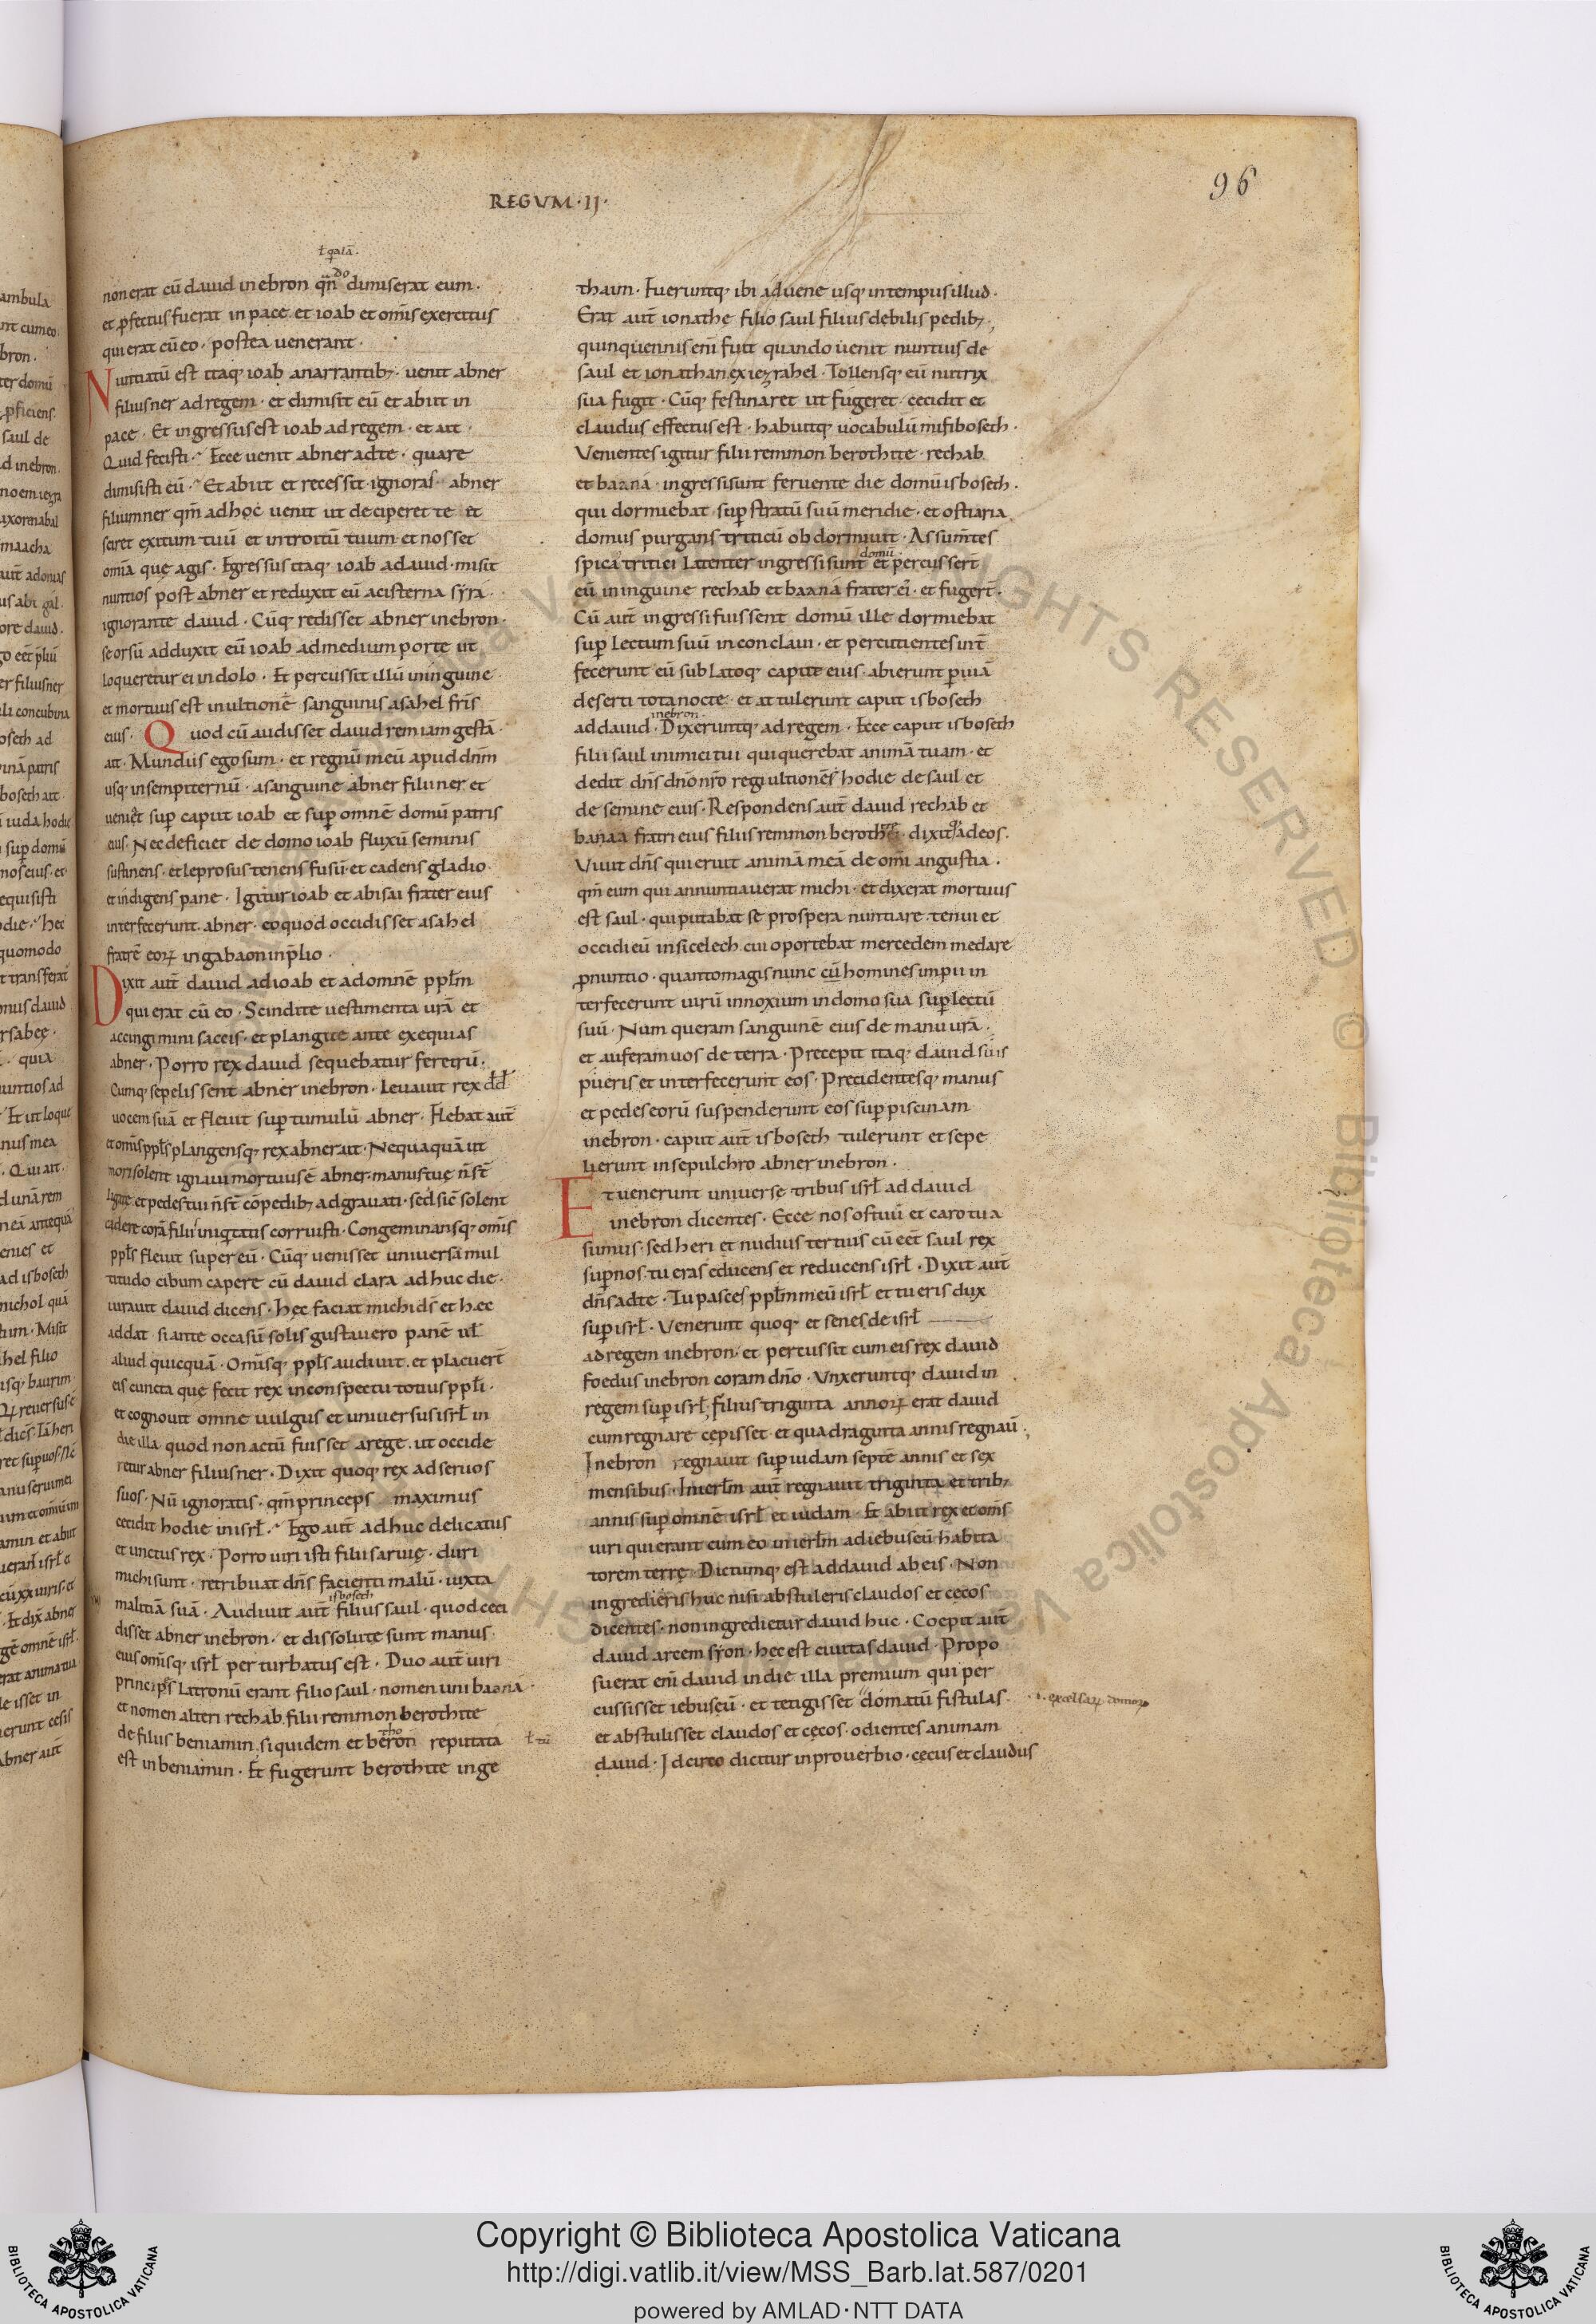 REGVM·II·
96
ł q̄aiā·
non erat cū dauid in ebron qn̄do dimiserat eum·
et ꝓfectus fuerat in pace· et ioab et om̄is exercitus
qui erat cū eo· postea uenerant·
Nuntiatū est itaq; ioab anarrantib;· uenit abner
filius ner ad regem· et dimisit eū et abiit in
pace· Et ingressus est ioab ad regem· et ait·
Quid fecisti·? Ecce uenit abner ad te· quare
dimisisti eū·? Et abiit et recessit· ignoras· abner
filium ner qm̄ ad hoc uenit ut deciperet te et
sciret exitum tuū et introitū tuum et nosset
omia quę agis· Egressus itaq; ioab a dauid· misit
nuntios post abner et reduxit eū a cisterna syra·
ignorante dauid· Cūq; redisset abner in ebron·
seorsū adduxit eū ioab ad medium porte ut
loqueretur ei in dolo· Et percussit illū in inguine·
et mortuus est in ultionē sanguinis asahel fr̄is
eius· Quod cū audisset dauid rem iam gestā·
ait· Mundus ego sum· et regnū meū apud dn̄m
usq; in sempiternū· a sanguine abner filii ner et
ueniet sup̄ caput ioab et sup̄ omnē domū patris
eius· Nec deficiet de domo ioab fluxū seminis
sustinens· et leprosus tenens fusū· et cadens gladio·
et indigens pane· Igitur ioab et abisai frater eius
interfecerunt· abner· eo quod occidisset asahel
fratrē eoꝝ in gabaon in p̄lio·
Dixit aut̄ dauid ad ioab et ad omnē ppl̄m
qui erat cū eo· Scindite uestimenta ur̄a et
accingimini saccis· et plangite ante exequias
abner· Porro rex dauid sequebatur feretrū·
Cumq; sepelissent abner in ebron· leuauit rex dd̄
uocem suā et fleuit sup̄ tumulū abner· Flebat aut̄
et om̄is ppl̄s plangensq; rex abner ait· Nequaquā ut
mori solent ignaui mortuus ē abner· manus tuę n̄ st̄
ligate et pedes tui n̄ st̄ cōpedib; adgrauati· sed sic̄ solent
cadere corā filiis iniq̇tatis corruisti· Congeminansq; om̄is
ppl̄s fleuit super eū· Cūq; uenisset uniuersa mul
titudo cibum capere cū dauid clara adhuc die·
iurauit dauid dicens· hęc faciat michi ds̄ et hęc
addat si ante occasū solis gustauero panē ul̄
aliud quicquā· Om̄isq; ppl̄s audiuit· et placuer̄t
eis cuncta quę fecit rex in conspectu totius ppl̄i·
et cognouit omne uulgus et uniuersus isrl̄ in
die illa quod non actū fuisset a rege· ut occide
retur abner filius ner· Dixit quoq; rex ad seruos
suos· Nū ignoratis· qm̄ princeps maximus
cecidit hodie in isrl̄·? Ego aut̄ adhuc delicatus
et unctus rex· Porro uiri isti filii saruię· duri
michi sunt· retribuat dn̄s facienti malū· iuxta
isboseth
malitiā suā· Audiuit aut̄ filius saul· quod ceci
disset abner in ebron· et dissolute sunt manus·
eius om̄isq; isrl̄ perturbatus est· Duo aut̄ uiri
principes latronū erant filio saul· nomen uni baana·
et nomen alteri rechab· filii remmon berothite
de filiis beniamin· siquidem et beroth reputata ł tū
est in beniamin· Et fugerunt berothite in ge
thaim· Fueruntq; ibi aduene usq; in tempus illud·
Erat aut̄ ionathe filio saul filius debilis pedib;·
quinquennis eni fuit quando uenit nuntius de
saul et ionathan ex iezrahel· Tollensq; eū nutrix
sua fugit· Cūq; festinaret ut fugeret· cecidit et
claudus effectus est· habuitq; uocabulū mifiboseth·
Venientes igitur filii remmon berothite· rechab
et baana· ingressi sunt feruente die domū isboseth·
qui dormiebat· sup̄ stratū suū meridie· et ostiaria
domus purgans triticū obdormiuit· Assum̄tes
domū
spica tritici latenter ingressi sunt et percusser̄t
eū in inguine rechab et baana frater ei· et fuger̄t·
Cū aut̄ ingressi fuissent domū ille dormiebat
sup̄ lectum suū in conclaui· et percutientes int̄
fecerunt eū sublatoq; capite eius· abierunt p̄ uiā
deserti tota nocte· et attulerunt caput isboseth
in ebron·
ad dauid· Dixeruntq; ad regem· Ecce caput isboseth
filii saul inimici tui qui querebat animā tuam· et
dedit dn̄s dn̄o nr̄o regi ultionēs hodie de saul et
de semine eius· Respondens aut̄ dauid rechab et
banaa fratri eius filiis remmon beroth · dixit ad eos·
Viuit dn̄s qui eruit animā meā de om̄i angustia·
qm̄ eum qui annuntiauerat michi· et dixerat mortuus
est saul· qui putabat se prospera nuntiare· tenui et
occidi eū in sicelech· cui oportebat mercedem me dare
ꝓ nuntio· quanto magis nunc cū homines impii in
terfecerunt uirū innoxium in domo sua sup̄ lectū
suū· Num queram sanguinē eius de manu ur̄a·
et auferam uos de terra· Precepit itaq; dauid suis
pueris et interfecerunt eos· Precidentesq; manus
et pedes eorū suspenderunt eos sup̄ piscinam
in ebron· caput aut̄ isboseth tulerunt et sepe
lierunt in sepulchro abner in ebron·
Et uenerunt uniuersę tribus isrl̄ ad dauid
in ebron dicentes· Ecce nos os tuū et caro tua
sumus· sed heri et nudius tertius cū eēt saul rex
sup̄ nos· tu eras educens et reducens isrl̄· Dixit aut̄
dn̄s ad te· Tu pasces ppl̄m meū isrl̄ et tu eris dux
sup̄ isrl̄· Venerunt quoq; et senes de isrl̄
ad regem in ebron· et percussit cum eis rex dauid
foedus in ebron coram dn̄o· Vnxeruntq; dauid in
regem sup̄ isrl̄· Filius triginta annoꝝ erat dauid
cum regnare cepisset· et quadraginta annis regnau̅·
In ebron regnauit sup̄ iudam septē annis et sex
mensibus· In ierl̄m aut̄ regnauit triginta et trib;
annis sup̄ omnē isrl̄ et iudam· Et abiit rex et om̄s
uiri qui erant cum eo in ierl̄m ad iebuseū habita
torem terrę· Dictumq; est ad dauid ab eis· Non
ingredieris huc nisi abstuleris claudos et cęcos
dicentes· non ingredietur dauid huc· Coepit aut̄
dauid arcem syon· hec est ciuitas dauid· Propo
suerat eni dauid in die illa premium qui per
cussisset iebuseū· et tetigisset domatū fistulas· ·i· excelsaꝝ domoꝝ
et abstulisset claudos et cęcos· odientes animam
dauid· Idcirco dicitur in prouerbio· cęcus et claudus
Copyright © Biblioteca Apostolica Vaticana
http://digi.vatlib.it/view/MSS_Barb.lat.587/0201
powered by AMLAD·NTT DATA
BIBLIOTECA APOSTOLICA VATICANA
BIBLIOTECA APOSTOLICA VATICANA